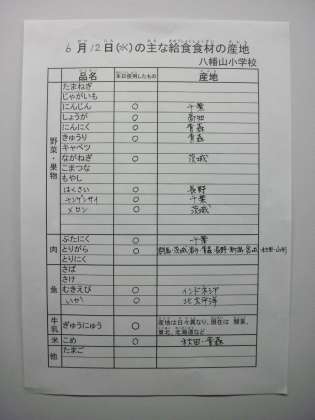 6月12日(水)の主な給食食材の産地
八幡山小学校
品名 本日使用したもの 産地
野菜・果物
たまねぎ
じゃがいも
にんじん ○ 千葉
しょうが ○ 高知
にんにく ○ 青森
きゅうり ○ 青森
キャベツ
ながねぎ ○ 茨城
こまつな
もやし
はくさい ○ 長野
チンゲンサイ ○ 千葉
メロン ○ 茨城
肉
ぶたにく ○ 千葉
とりがら ○
とりにく
魚
さば
さけ
むきえび ○ インドネシア
いか ○ 北太平洋
牛乳
ぎゅうにゅう ○ 産地は日々異なり、現在は 関東、
東北、北海道など
米 こめ ○ 秋田・青森
他 たまご